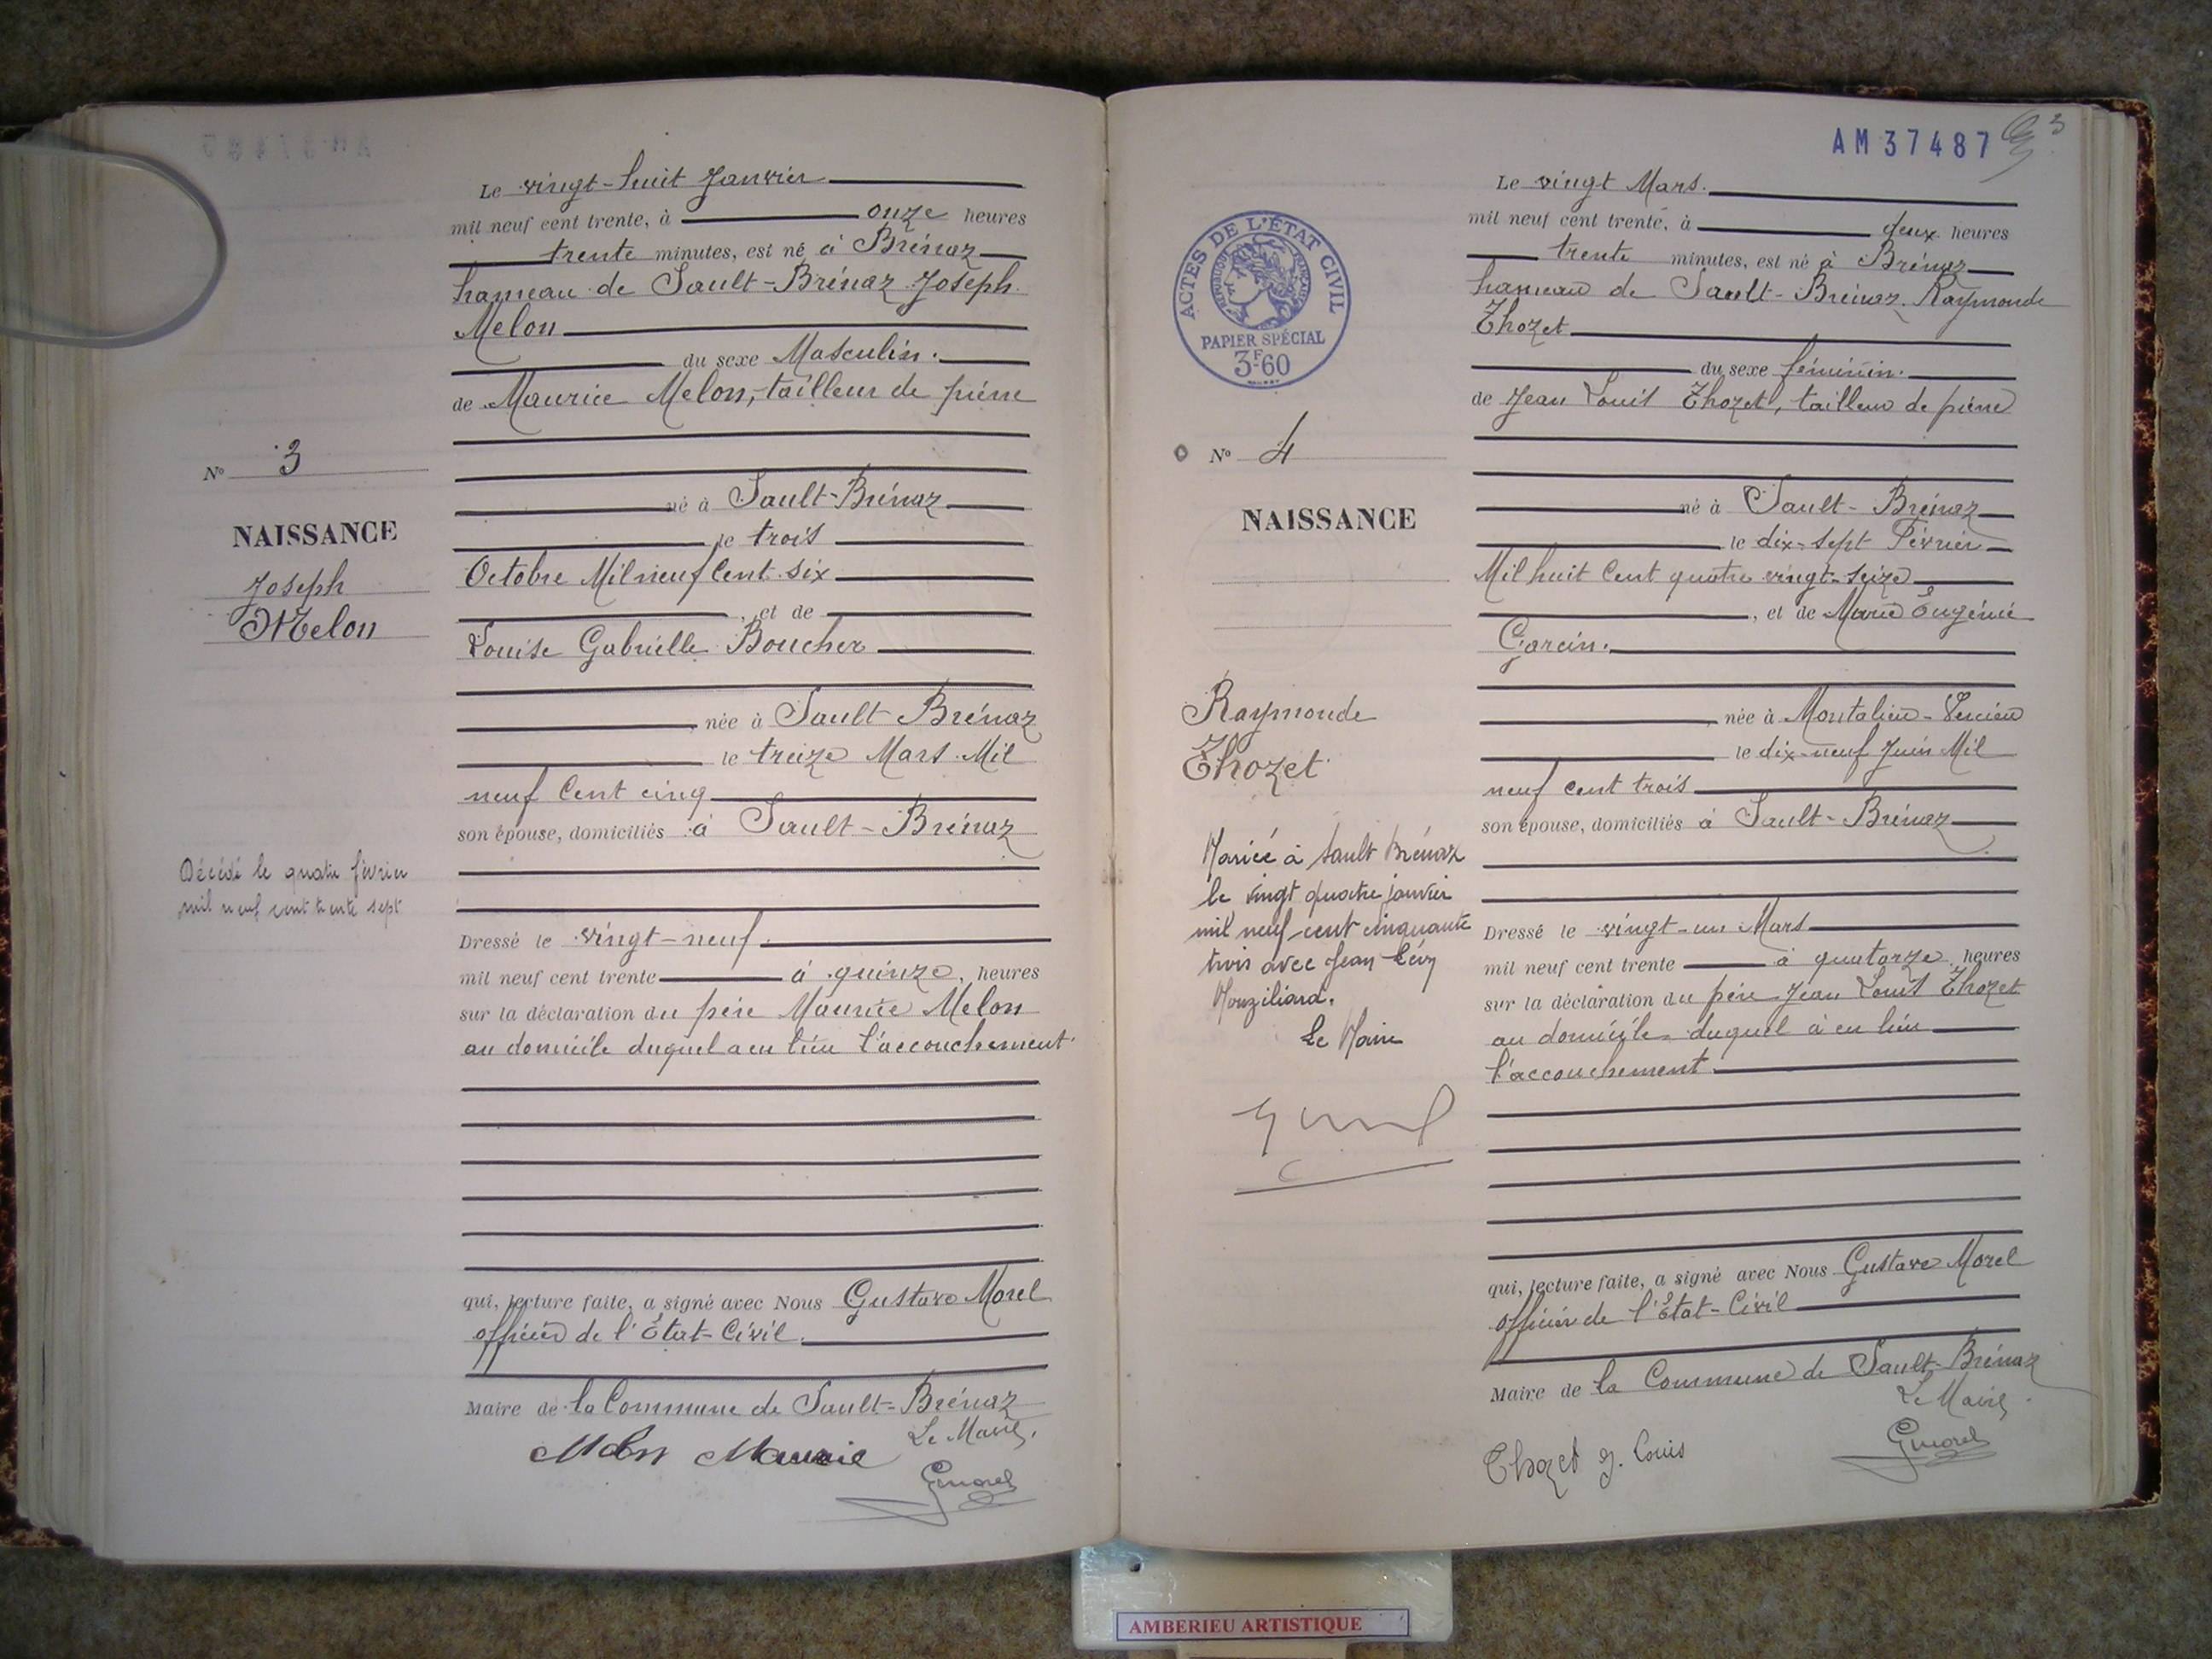 Le vingt-huit Janvier
mil neuf cent trente, à onze heures
trente minutes, est né à Brénaz
hameau de Sault-Brénaz Joseph
Melon
du sexe Masculin.
de Maurice Melon, tailleur de pierre
né à Sault-Brénaz
le trois
Octobre Mil neuf Cent six
, et de
Louise Gabrielle Boucher
née à Sault Brénaz
le treize Mars Mil
neuf Cent cinq
son épouse, domiciliés à Sault-Brénaz
Dressé le vingt-neuf
mil neuf cent trente à quinze, heures
sur la déclaration du père Maurice Melon
au domicile duquel a eu lieu l'accouchement
qui, lecture faite, a signé avec Nous Gustave Morel
officier de l'Etat-Civil.
Maire de la Commune de Sault-Brénaz
Le Maire,
Melon Maurice
Gmorel
N° 3
NAISSANCE
Joseph
Melon
Décédé le quatre février
mil neuf cent trente sept
AM37487
3
Le vingt Mars.
mil neuf cent trente, à deux heures
trente minutes, est né à Brénaz
hameau de Sault-Brénaz Raymonde
Thozet
du sexe féminin.
de Jean Louis Thozet, tailleur de pierre
né à Sault-Brénaz
le dix-sept Février
Mil huit Cent quatre vingt-seize
, et de Marie Eugénie
Garcin.
née à Montalieu-Vercieu
le dix-neuf Juin Mil
neuf cent trois
son épouse, domiciliés à Sault-Brénaz
Dressé le vingt-un Mars
mil neuf cent trente à quatorze heures
sur la déclaration du père Jean Louis Thozet
au domicile duquel à eu lieu
l'accouchement.
qui, lecture faite, a signé avec Nous Gustave Morel
officier de l'Etat-Civil
Maire de la Commune de Sault-Brénaz
Le Maire,
Thozet J. Louis
Gmorel
ACTES DE L'ÉTAT CIVIL
RÉPUBLIQUE FRANÇAISE
PAPIER SPÉCIAL
3F60
N° 4
NAISSANCE
Raymonde
Thozet
Mariée à Sault Brénaz
le vingt quatre janvier
mil neuf cent cinquante
trois avec Jean
Le Maire
AMBERIEU ARTISTIQUE